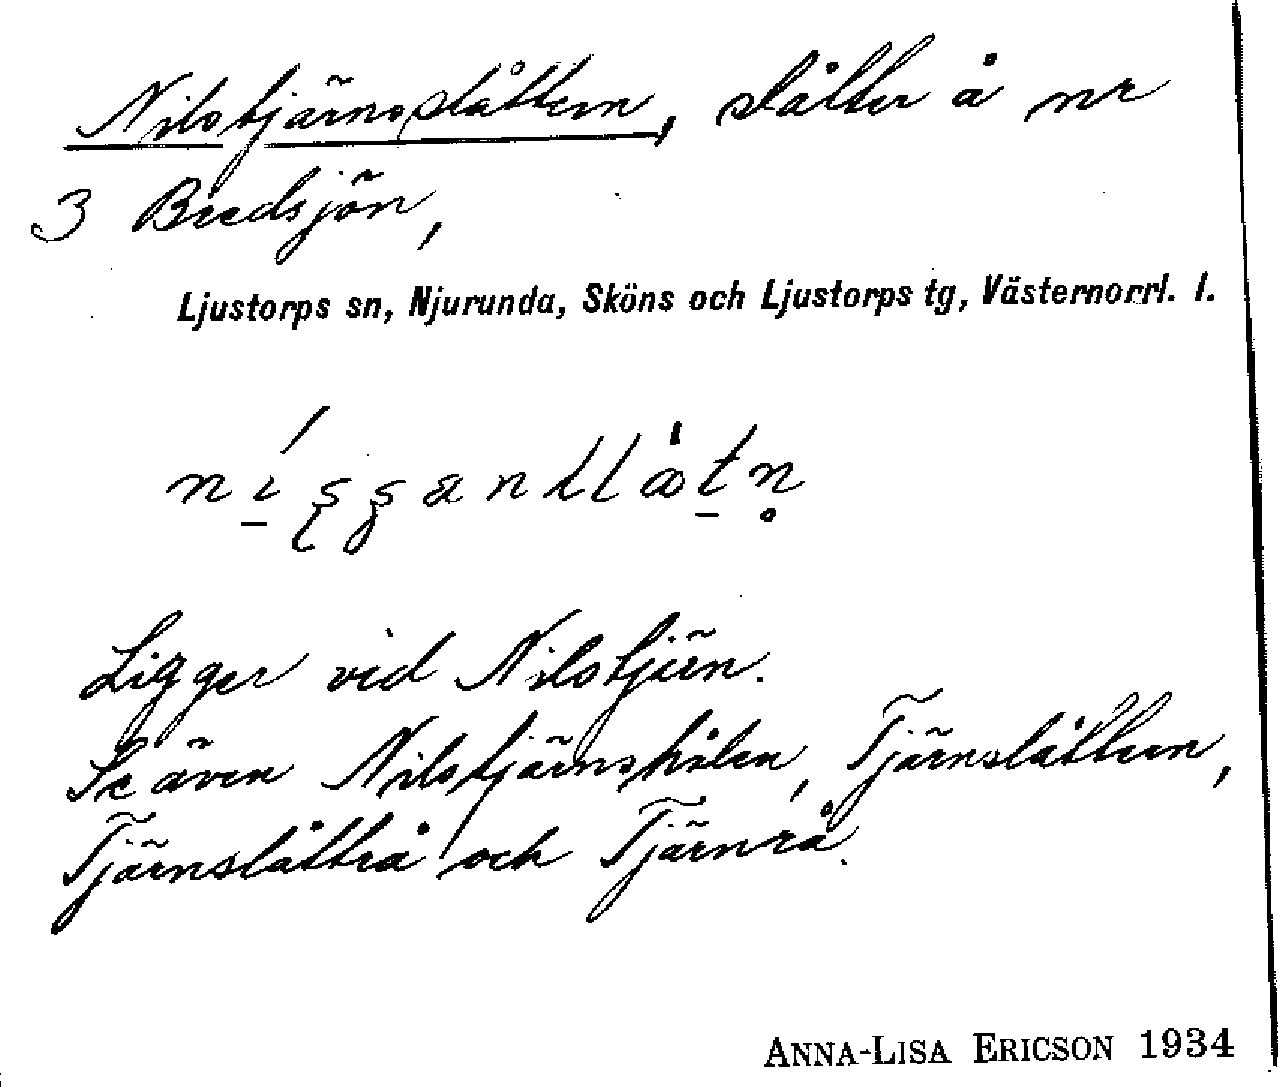 Nilstjärnsslåttern, slåtter å nr
3 Bredsjön,
Ljustorps sn, Njurunda, Sköns och Ljustorps tg, Västernorrl. l.
Ligger vid Nilstjärn.
Se även Nilstjärnshålen, Tjärnslåttern,
Tjärnslåttrå och Tjärnrå.
ANNA-LISA ERICSON 1934